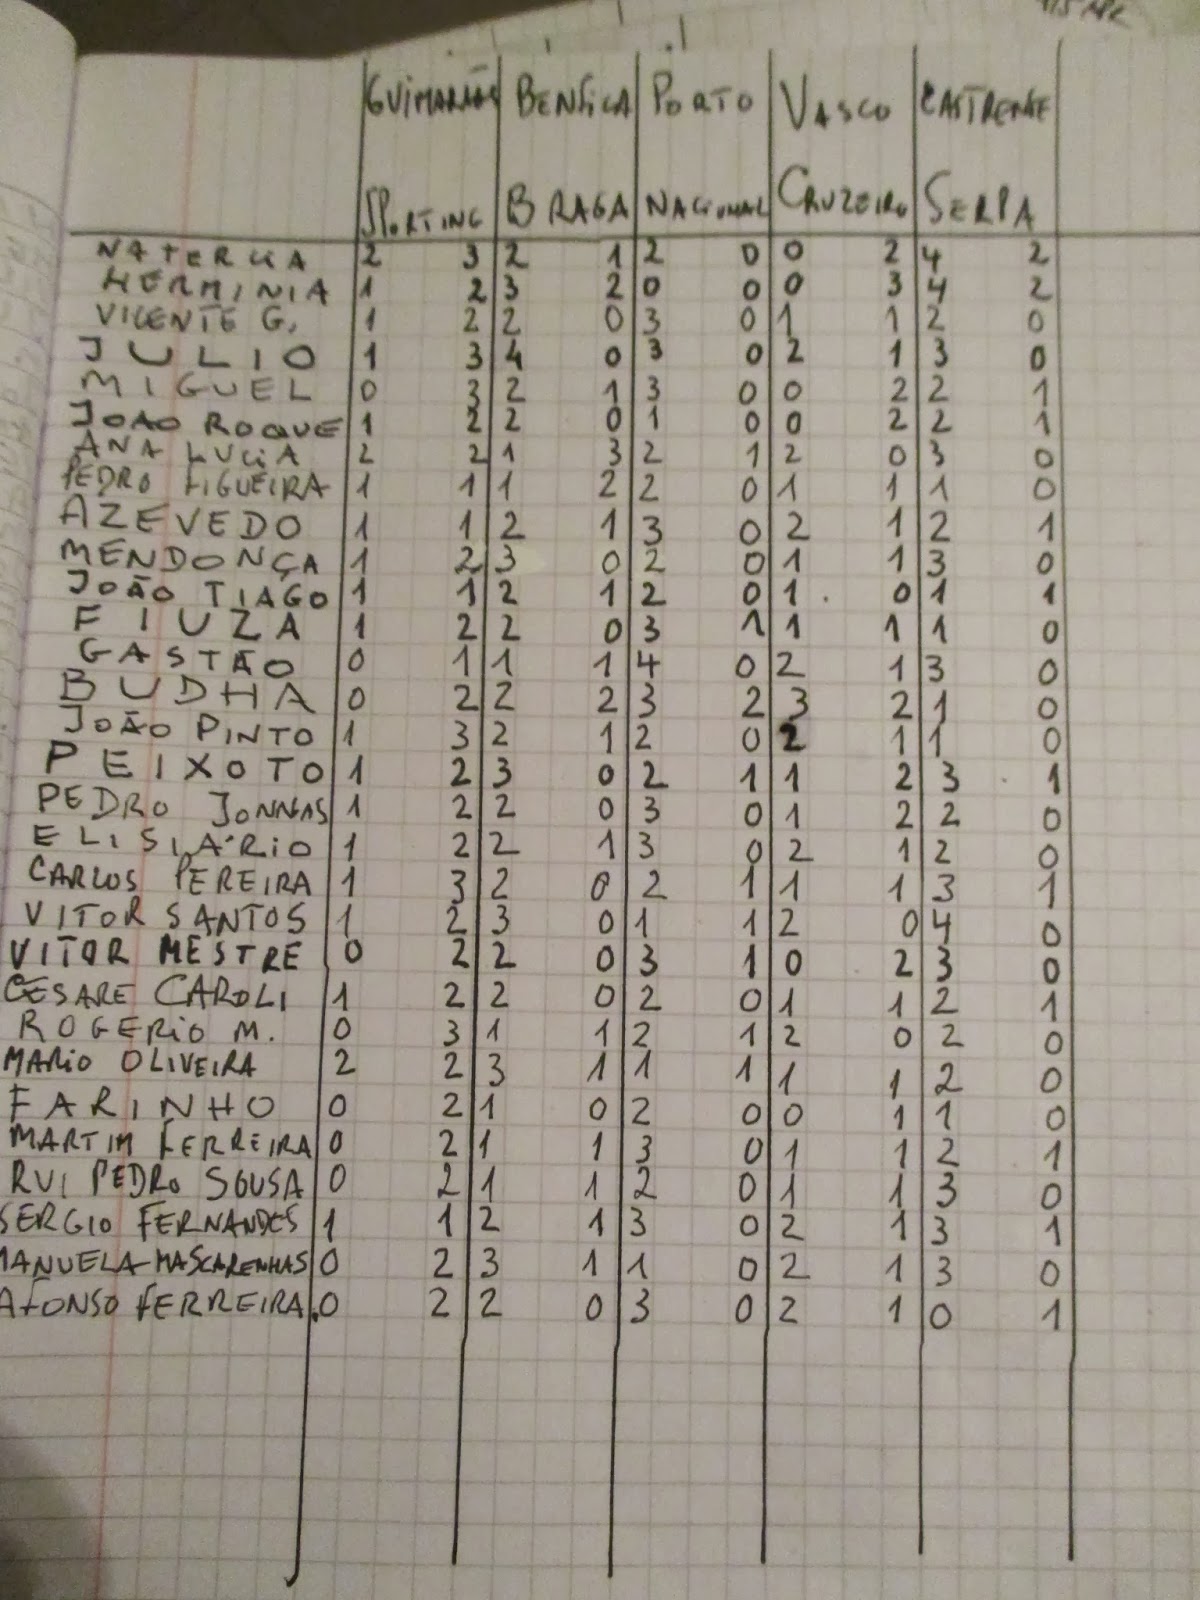 GUIMARÃES BENFICA PORTO VASCO CASTRENSE
SPORTING BRAGA NACIONAL CRUZEIRO SERPA
NATERCIA 2 3 2 1 2 0 0 2 4 2
HERMINIA 1 2 3 2 0 0 0 3 4 2
VICENTE G. 1 2 2 0 3 0 1 1 2 0
JULIO 1 3 4 0 3 0 2 1 3 0
MIGUEL 0 3 2 1 3 0 0 2 2 1
JOAO ROQUE 1 2 2 0 1 0 0 2 2 1
ANA LUCIA 2 2 1 3 2 1 2 0 3 0
PEDRO FIGUEIRA 1 1 1 2 2 0 1 1 1 0
AZEVEDO 1 1 2 1 3 0 2 1 2 1
MENDONÇA 1 2 3 0 2 0 1 1 3 0
JOÃO TIAGO 1 1 2 1 2 0 1 0 1 1
FIUZA 1 2 2 0 3 1 1 1 1 0
GASTÃO 0 1 1 1 4 0 2 1 3 0
BUDHA 0 2 2 2 3 2 3 2 1 0
JOÃO PINTO 1 3 2 1 2 0 2 1 1 0
PEIXOTO 1 2 3 0 2 1 1 2 3 1
PEDRO JONNAS 1 2 2 0 3 0 1 2 2 0
ELISIÁRIO 1 2 2 1 3 0 2 1 2 0
CARLOS PEREIRA 1 3 2 0 2 1 1 1 3 1
VITOR SANTOS 1 2 3 0 1 1 2 0 4 0
VITOR MESTRE 0 2 2 0 3 1 0 2 3 0
CESARE CAROLI 1 2 2 0 2 0 1 1 2 1
ROGERIO M. 0 3 1 1 2 1 2 0 2 0
MARIO OLIVEIRA 2 2 3 1 1 1 1 1 2 0
FARINHO 0 2 1 0 2 0 0 1 1 0
MARTIM FERREIRA 0 2 1 1 3 0 1 1 2 1
RUI PEDRO SOUSA 0 2 1 1 2 0 1 1 3 0
SERGIO FERNANDES 1 1 2 1 3 0 2 1 3 1
MANUELA-MASCARENHAS 0 2 3 1 1 0 2 1 3 0
AFONSO FERREIRA. 0 2 2 0 3 0 2 1 0 1